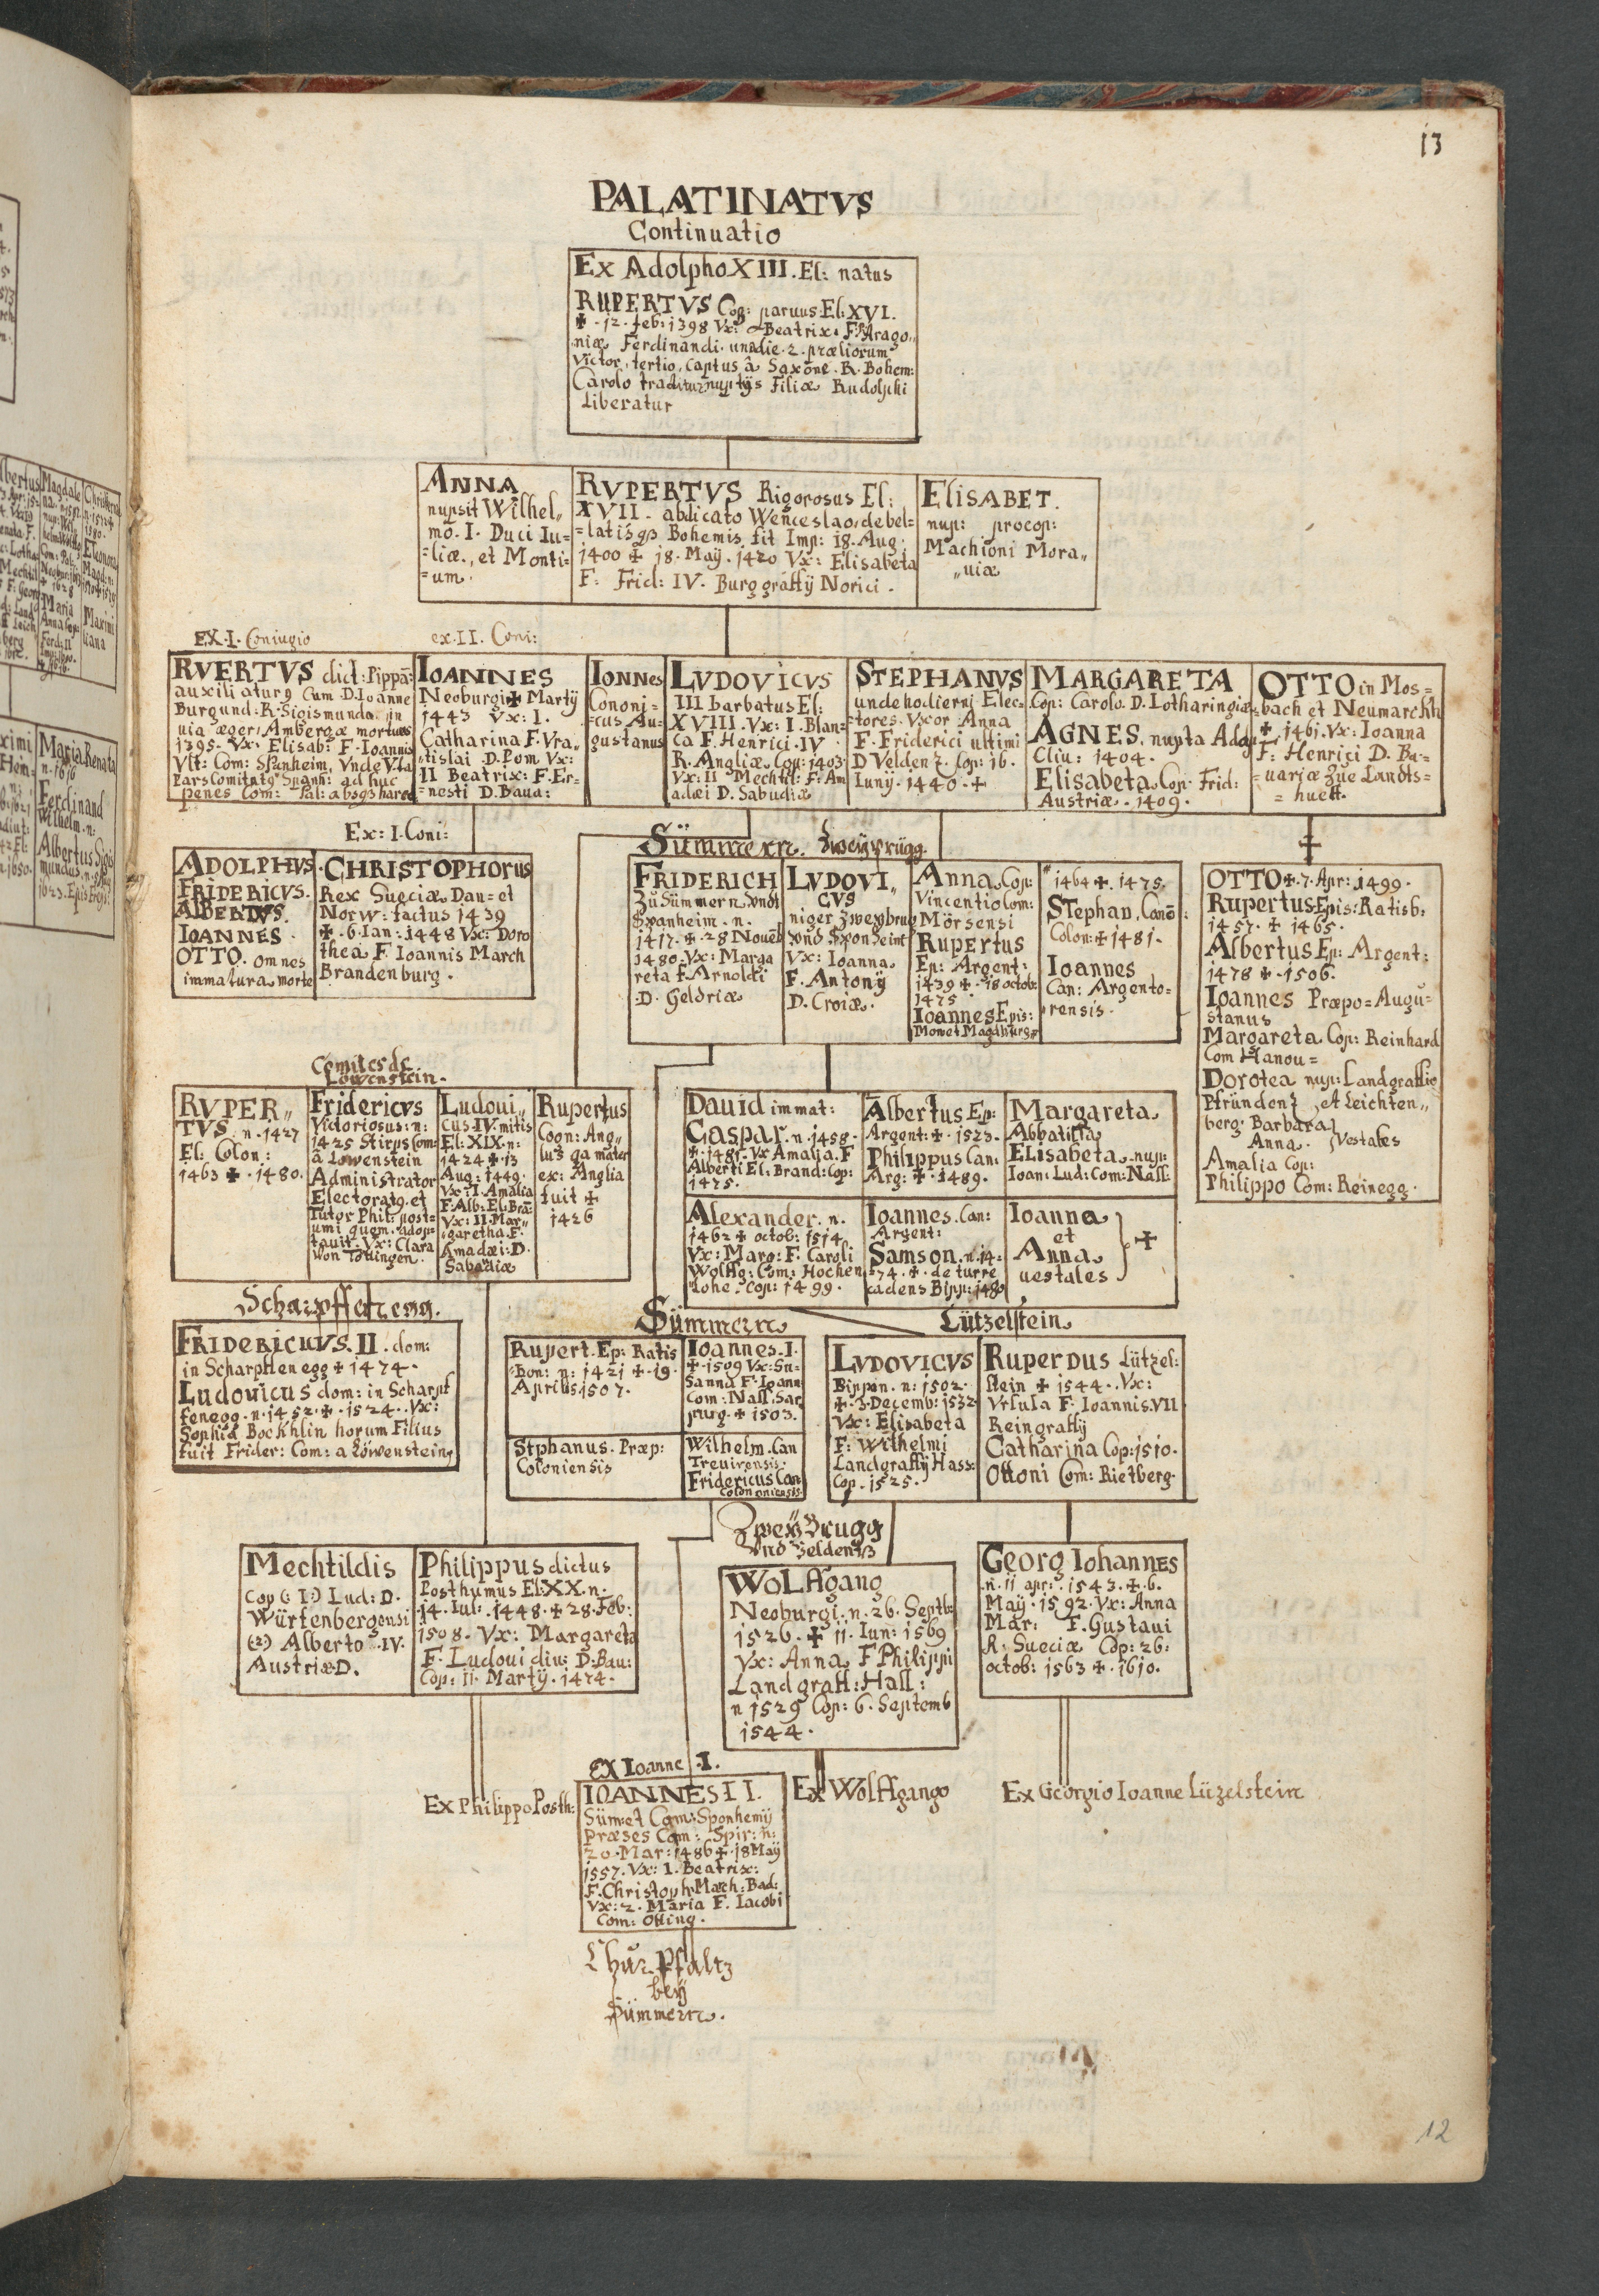 13
PALATINATVS
Continuatio
Ex Adolpho XIII. El: natus
RUPERTVS Cog: paruus El: XVI.
✠ · 12 · feb: 1398 Vx: Beatrix F: Arago„
niæ Ferdinandi · una die · 2 · præliorum
Victor, tertio, captus â Saxone · R · Bohem:
Carolo traditur nuptijs Filiæ Rudolphi
Liberatur
ANNA
nupsit Wilhel„
mo. I. Duci Iu=
=liæ, et Monti=
=um.
RVPERTVS Rigorosus El:
XVII. abdicato Wenceslao, debel=
=latisq3 Bohemis fit Imp: 18. Aug:
1400 ✠ 18. Maÿ. 1420 Vx: Elisabeta
F: Frid: IV. Burggraffÿ Norici.
ELISABET.
nup: procop:
Machioni Mora„
„uiæ
EX. I. Coniugio
ex. II. Coni:
RVERTVS dict: Pippã:
auxiliatur9 Cum D. Ioanne
Burgund: R. Sigismundo in
uia æger, Ambergæ mortuus
1395. Vx: Elisab: F. Ioannis
Vlt: Com: Spanheim, Vnde Vla
Pars Comitat9 Spanh: ad huc
penes Com: Pal: absq3 hared
IOANNES
Neoburgi ✠ Martÿ
1443 Vx: I.
Catharina F. Vra„
tislai D. Pom Vx:
II Beatrix: F. Er=
=nesti D. Baua:
IONNES
Cononi=
=cus Au=
gustanus
LVDOVICVS
III barbatus El:
XVIII. Vx: I. Blan=
ca F. Henrici. IV
R. Angliæ. Cop: 1403
Vx: II Mechtil: F. Am
adæi D. Sabudiæ
STEPHANVS
unde hodierni Elec=
=tores. Vxor Anna
F. Friderici ultimi
D Veldenz. Cop: 16.
Iunÿ. 1440. ✠
MARGARETA
Cop: Carolo. D. Lotharingiæ
AGNES. nupta Adol
Cliu: 1404.
Elisabeta Cop: Frid:
Austriæ. 1409.
OTTO in Mos=
=bach et Neumarckh
✠ · 1461. Vx: Ioanna
F: Henrici D. Ba=
=uariæ Zue Landts=
= huett.
Ex: I. Coni:
ADOLPHVS.
FRIDERICVS.
ALBERTVS.
IOANNES.
OTTO. omnes
immatura morte
CHRISTOPHORUS
Rex Sueciæ Dan= et
Norw: factus 1439
✠ · 6. Ian: 1448 Vx: Doro
thea F Ioannis March
Brandenburg.
Sümmern. Zweyprugg.
FRIDERICH
Zu Sümmern, vndt
Spanheim. n.
1417. ✠ · 28 Nouẽb
1480. Vx: Marga
reta F. Arnoldi
D. Geldriæ
LVDOVI„
CVS
niger Zweybrug
vnd Sponheim
Vx: Ioanna
F. Antonÿ
D. Croiæ.
Anna Cop:
Vincentio Com:
Mörsensi
Rupertus
Ep: Argent:
1439 ✠ · 18 octob:
1475
Ioannes Epis:
Monet Magdburg„
1464 ✠. 1475.
Stephan, Canõ:
Colon: ✠ 1481.
Ioannes
Can: Argento=
rensis.
OTTO ✠ · 7. Apr: 1499.
Rupertus Epis: Ratisb:
1457. ✠ 1465.
Albertus Ep: Argent:
1478 ✠ · 1506.
Ioannes Præpo= Augu=
stanus
Margareta Cop: Reinhard
Com Hanou=
Dorotea nup: Landgraffio
Pfründenz et Leichten„
berg. Barbara
Anna. Vestales
Amalia Cop:
Philippo Com: Reinegg.
Comites de
Löwenstein.
RVPER„
TVS. n. 1427
El: Colon:
1463 ✠ · 1480.
Fridericvs
Victoriosus: n:
1425 Stirps Com:
â Lowenstein
Administrator
Electorat9 et
Tutor Phil: post=
umi quem adop=
tauit. Vx: Clara
von Tettingen.
Ludoui„
cus. IV. mitis
El: XIX. n:
1424 ✠ · 13
Aug: 1449.
Vx: I. Amalia
F: Alb: El: Brã:
Vx: II. Mar„
garetha F.
Amadæi: D.
Sabadiæ
Rupertus
Cogn: Ang„
lu3 qa mater
ex: Anglia
fuit ✠
1426
Dauid immat:
Caspar. n. 1458.
✠ · 1481. Vx Amalia. F
Alberti El: Brand: Cop:
1475.
Albertus Ep:
Argent: ✠ · 1523.
Philippus Can:
Arg: ✠ · 1489.
Margareta
Abbatissa
ELisabeta nup:
Ioan: Lud: Com: Nass:
Alexander. n.
1462 ✠ octob: 1514
Vx: Marg: F. Caroli
Wolffg: Com: Hochen
lohe. Cop: 1499.
Ioannes. Can:
Argent:
Samson. n. 14=
=74. ✠. de turre
cadens Bipp: 1480
Ioanna
et
Anna
uestales
✠
Scharpffenegg.
FRIDERICUVS. II. dom:
in Scharpffenegg ✠ 1474.
Ludouicus dom: in Scharpf
fenegg. n. 1452. ✠ · 1524. Vx:
Sophia Bockhlin horum Filius
fuit Frider: Com: a Löwenstein,
Sümmern
Rupert. Ep: Ratis
bon: n: 1421 ✠ · 19.
Aprilis. 1507.
Ioannes. I.
✠ · 1509 Vx: Su=
Sanna F. Ioann
Com: Nass: Sar
purg. ✠ 1503.
Stphanus. Præp:
Coloniensis
Wilhelm. Can
Treuirensis.
Fridericus Can
Colon oniensis.
Lützelstein
LVDOVICVS
Bippon. n: 1502.
✠ · 3. Decemb: 1532
Vx: Elisabeta
F: Wilhelmi
Landgraffÿ Hass:
Cop. 1525.
RUPERDUS Lützel:
stein ✠ 1544. Vx:
Vrsula F. Ioannis. VII
Reingraffÿ
Catharina Cop: 1510.
Ottoni Com: Rietberg.
Mechtildis
Cop (: I:) Lud: D.
Würtenbergensi
(:2:) Alberto. IV.
Austriæ D.
Philippus dictus
Posthumus El: XX. n.
14. Iul: 1448. ✠ 28. Feb:
1508. Vx: Margareta
F. Ludoui diu: D. Bau:
Cop: 11. Martÿ. 1474.
Zweÿbrugg
Vnd Veldentz
WOLffgang
Neoburgi. n. 26. Septb:
1526. ✠ 11. Iun: 1569
Vx: Anna F Philippi
Landgraff: Hass:
n 1529 Cop: 6. Septemb
1544.
Georg Iohannes
n. 11 apr: 1543. ✠. 6.
Maÿ. 1592. Vx: Anna
Mar: F. Gustaui
R: Sueciæ Cop: 26:
octob: 1563 ✠. 1610.
Ex Ioanne. I.
Ex Philippo Posth:
IOANNES II.
Süm et Com: Sponhemÿ
Præses Cam: Spir: n:
20. Mar: 1486 ✠. 18 Maÿ
1557. Vx: 1. Beatrix:
F. Christoph. March: Bad:
Vx: 2. Maria F. Iacobi
Com: Otting.
Ex Wolffgango
Ex Georgio Ioanne Lüzelstein
Chur Pfaltz
beÿ
Sümmern.
12